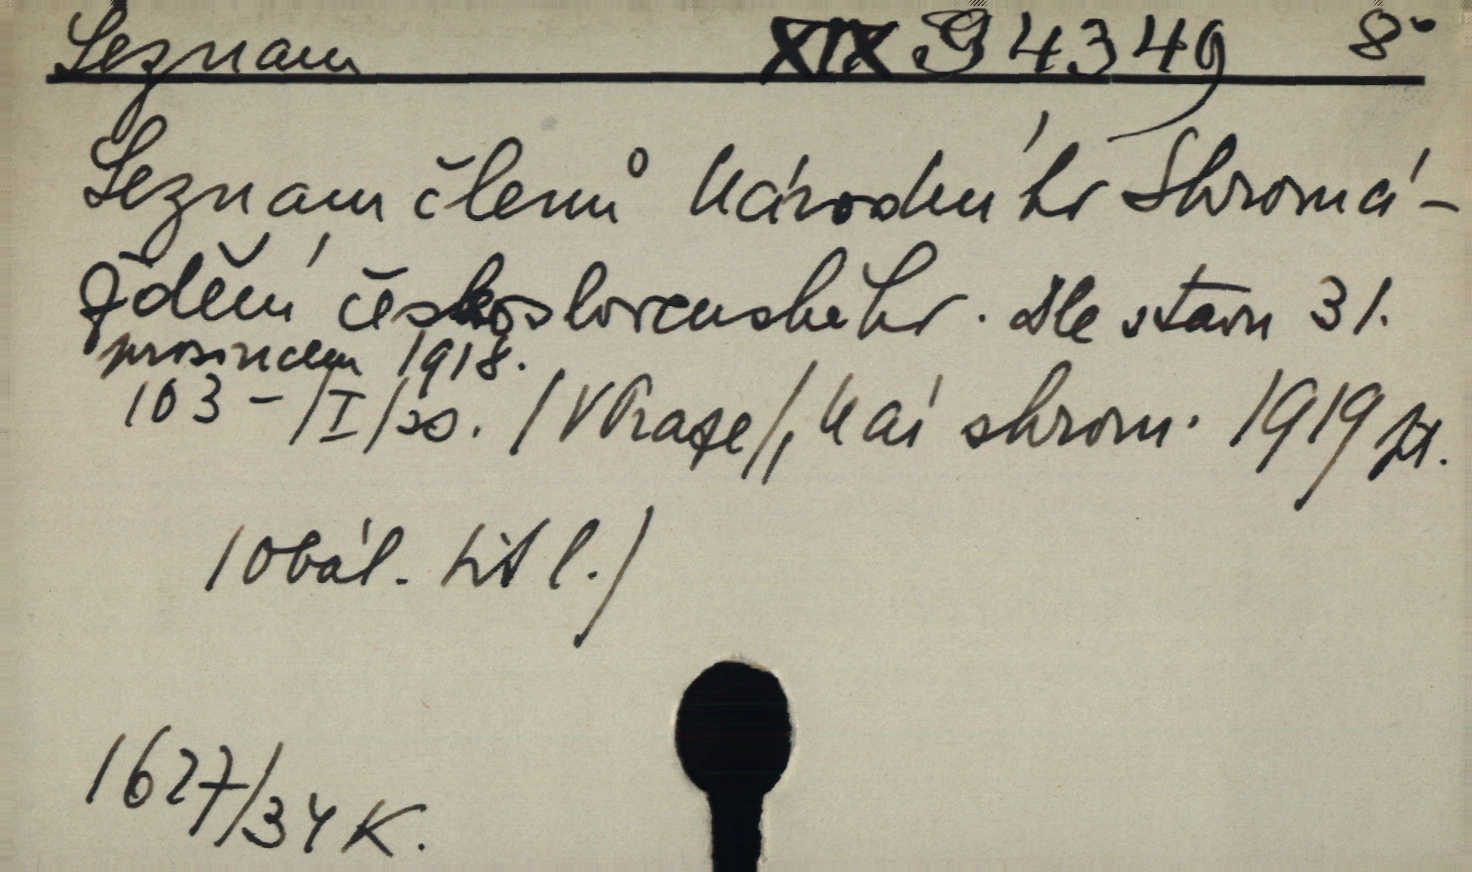 Seznam XIX 94349 8°
Seznam členů Národního Shromá-
ždění československého. Dle stavu 31.
prosincem 1918.
103 - /I/ ss. /V Praze/, Nár shrom. 1919 
/Obál. tit l./
1627/34 K.